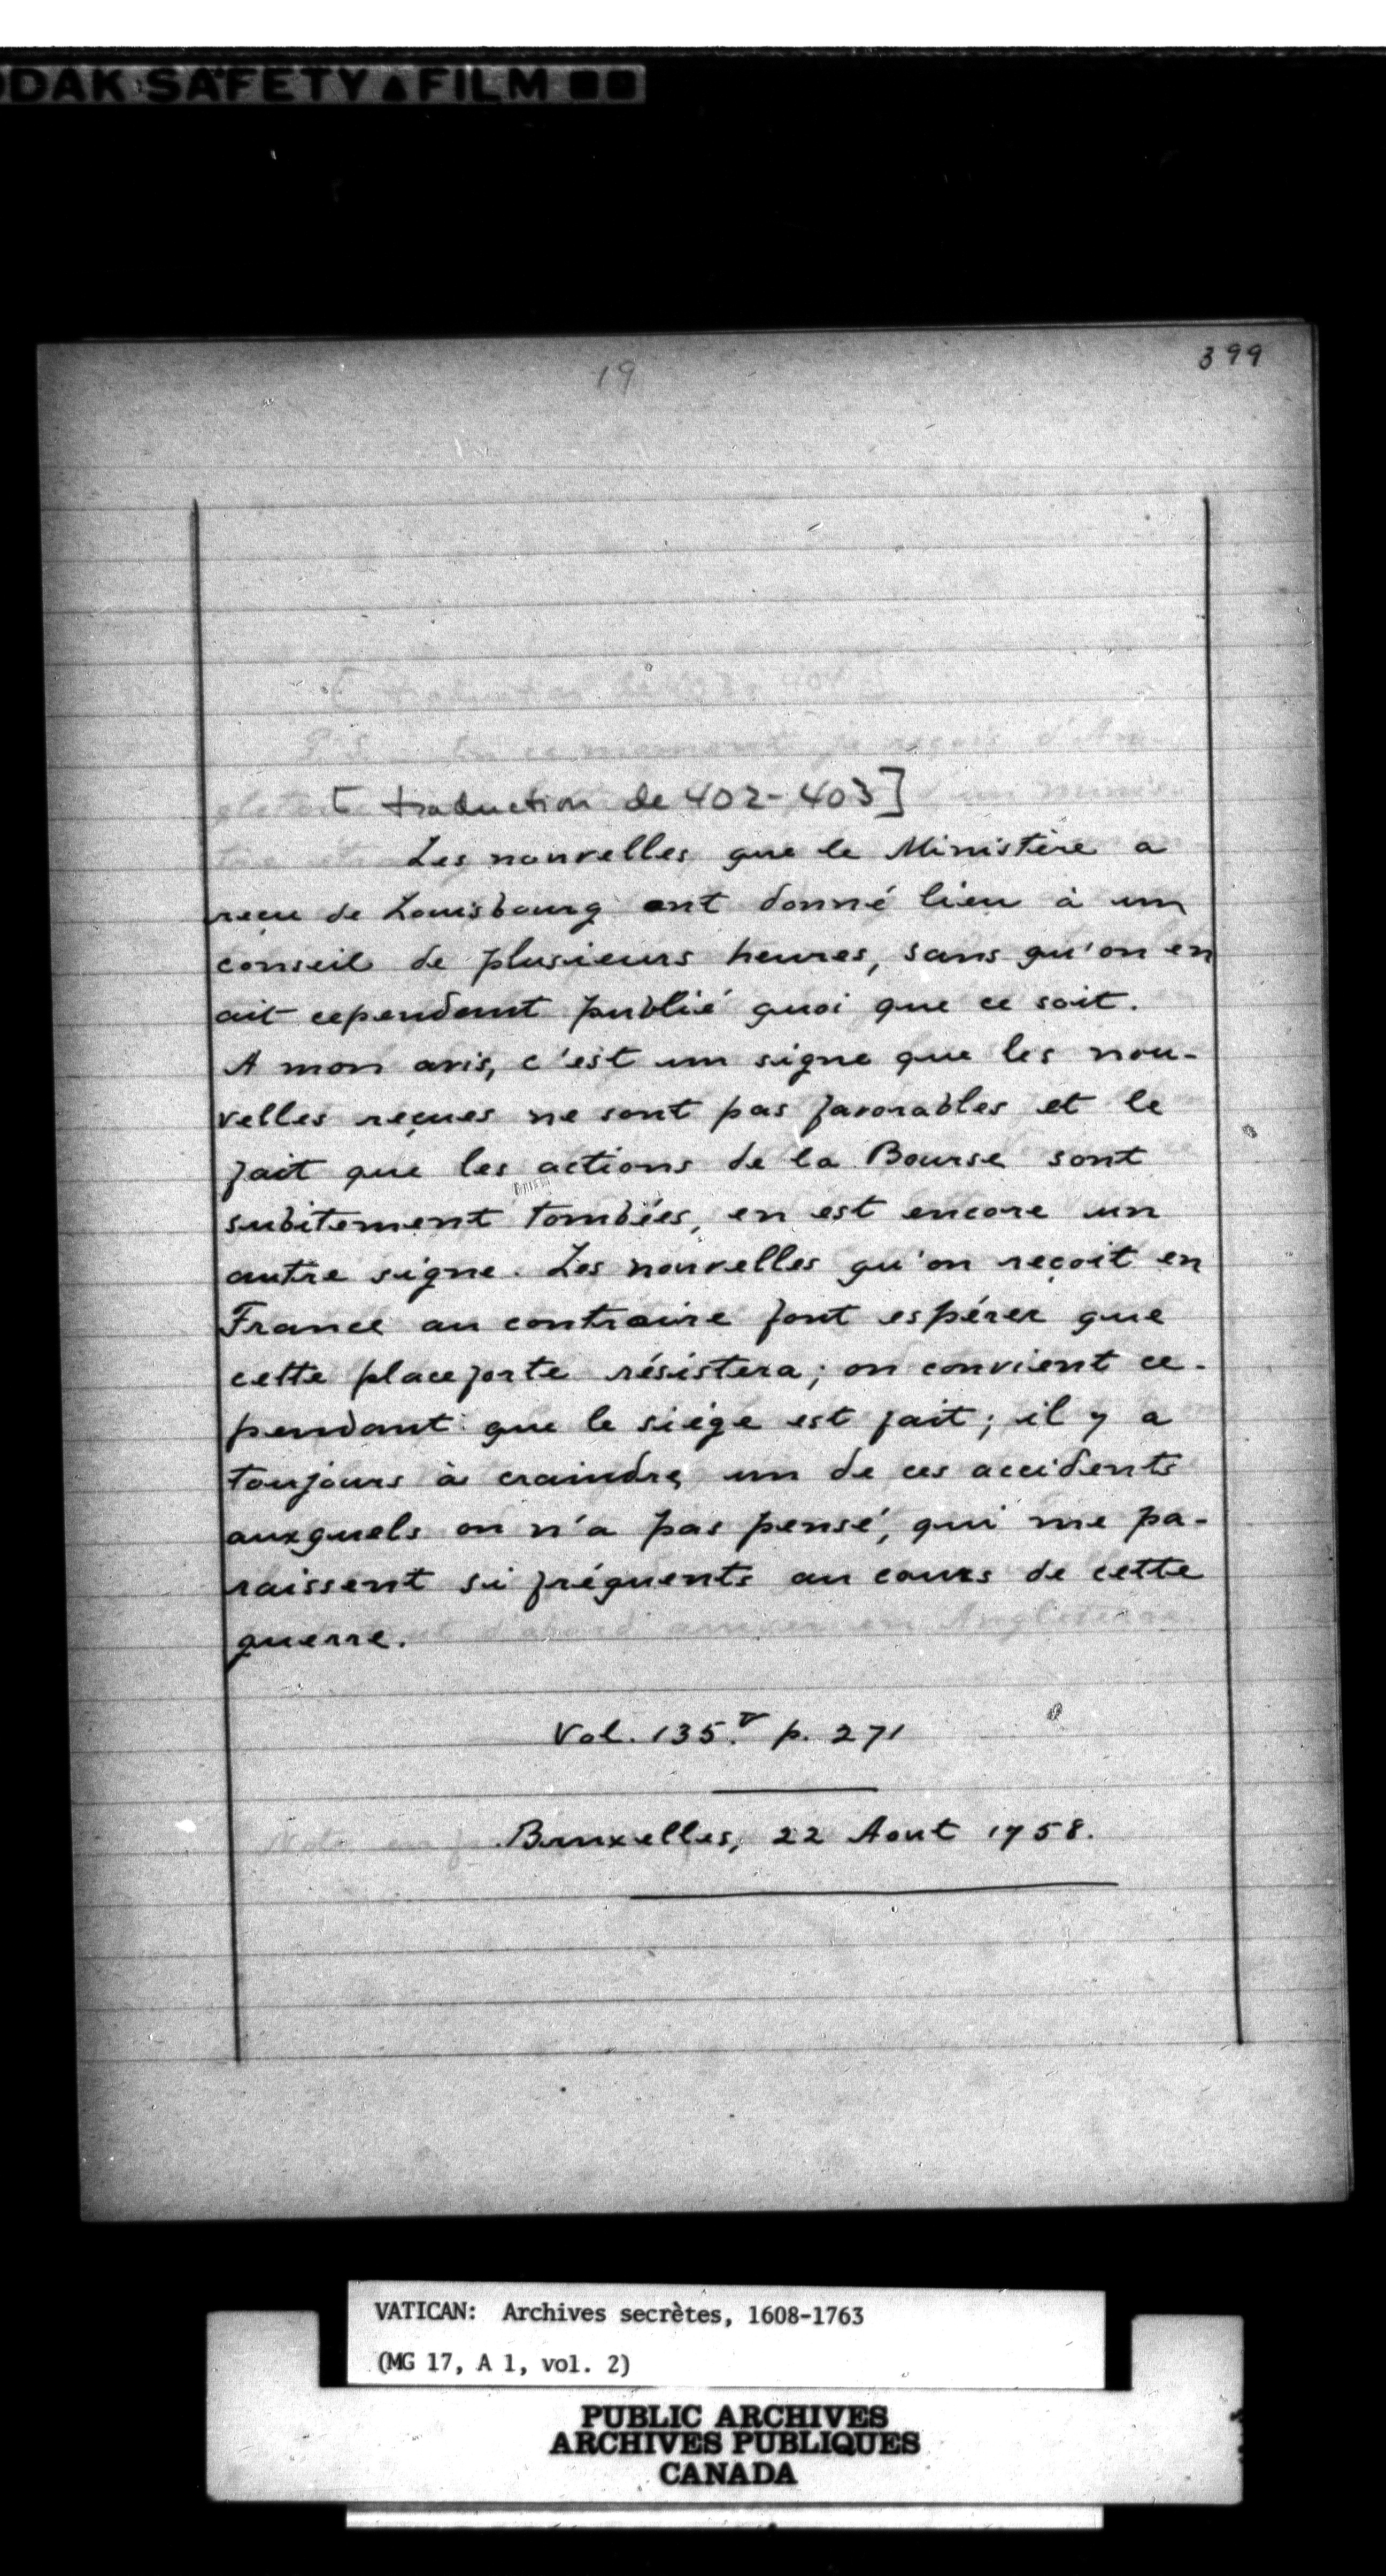 ODAK SAFETY FILM
19
399
[traduction de 402-403]
Les nouvelles que le Ministère a
reçu de Louisbourg ont donné lieu à un
conseil de plusieurs heures, sans qu'on en
ait cependant publié quoi que ce soit.
A mon avis, c'est un signe que les nou-
velles reçues ne sont pas favorables et le
fait que les actions de la Bourse sont
subitement tombées, en est encore un
autre signe. Les nouvelles qu'on reçoit en
France au contraire font espérer que
cette place forte résistera; on convient ce-
pendant que le siége est fait; il y a
toujours à craindre un de ces accidents
auxquels on n'a pas pensé, qui me pa-
raissent si fréquents au cours de cette
guerre.
Vol. 135. p. 271
Bruxelles, 22 Aout 1758.
VATICAN: Archives secrètes, 1608-1763
(MG 17, A 1, vol. 2)
PUBLIC ARCHIVES
ARCHIVES PUBLIQUES
CANADA